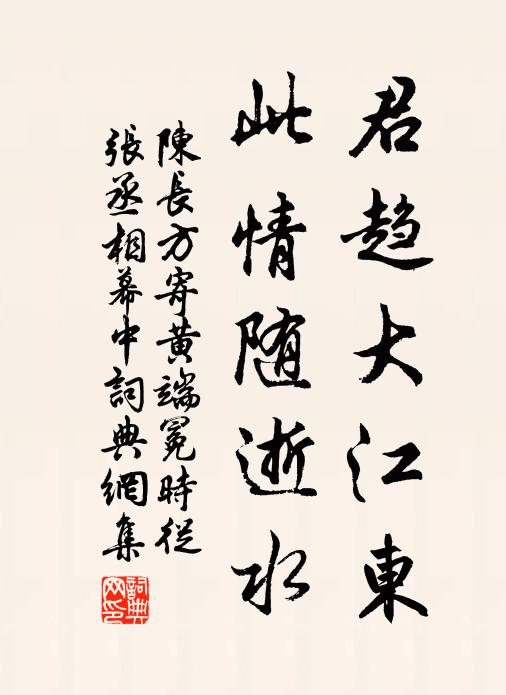 君趋大江東
此情随逝水
陳長方寄黄端冕時從
張丞相幕中詞典網集
詞典網印